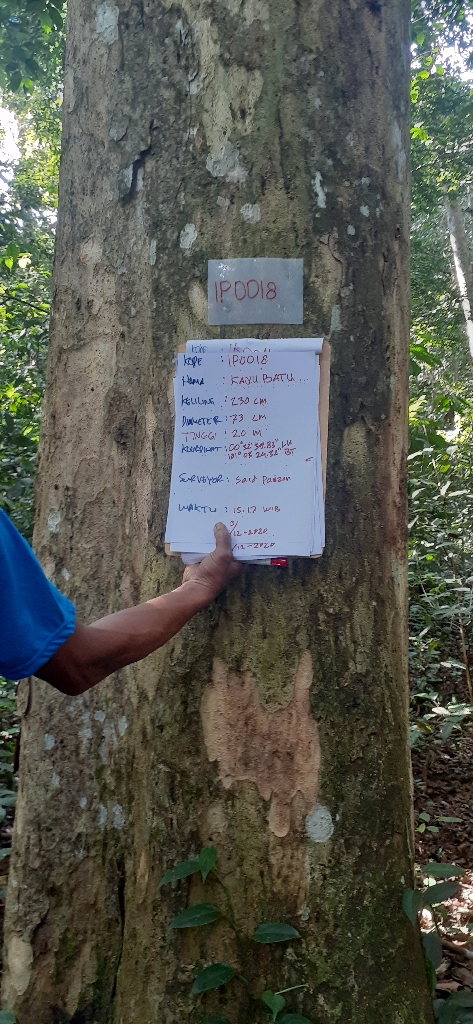 IP0018
KODE : IP0018
NAMA : KAYU BATU ...
KELILING : 230 CM
DIAMETER : 73 CM
TINGGI : 20 M
KOORDINAT : 00° 32' 39.83" LU
101° 03' 24.32" BT
SURVEYOR : Said Paizin
WAKTU : 15.17 WIB
3/
/12-2020
/12-2020